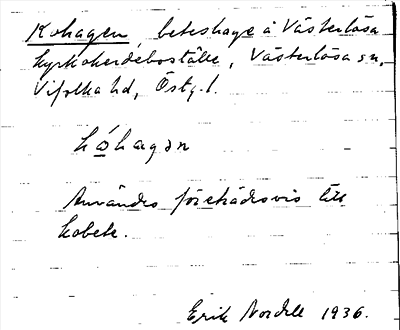 Kohagen, beteshage å Västerlösa
kyrkoherdeboställe, Västerlösa sn,
Vifolka hd, Östg. l.
kóhagan
Användes företrädesvis till
kobete.
Erik Nordell 1936.